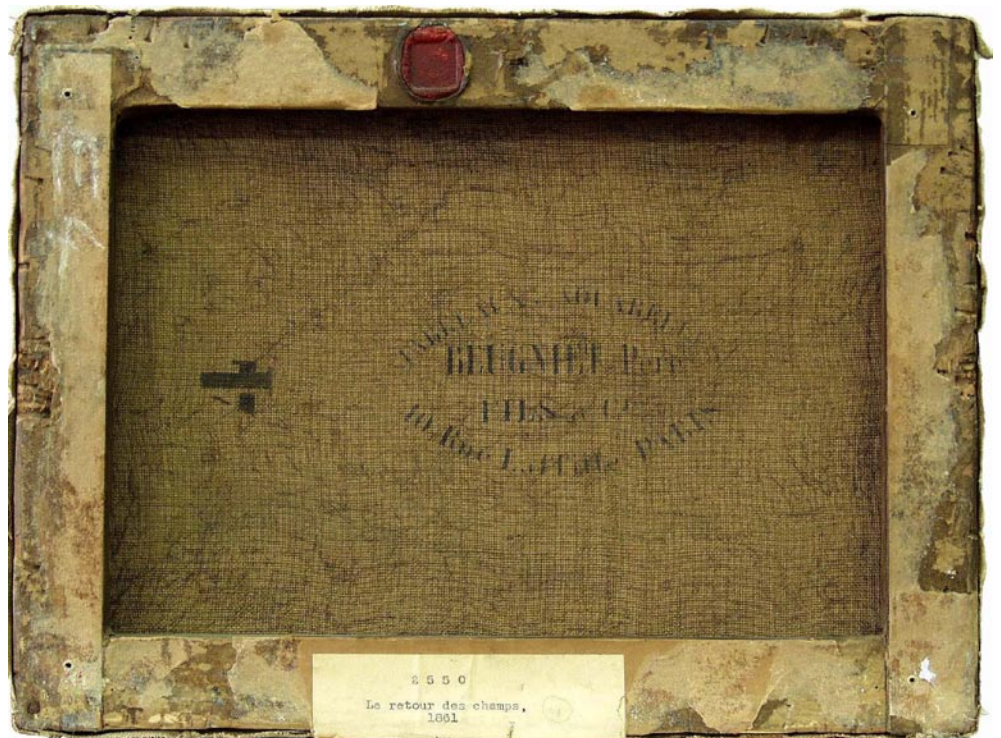 TABLEAUX
BEUGNIET Père
FILS & Cie
10, Rue Laffitte PARIS
2550
Le retour des champs,
1861